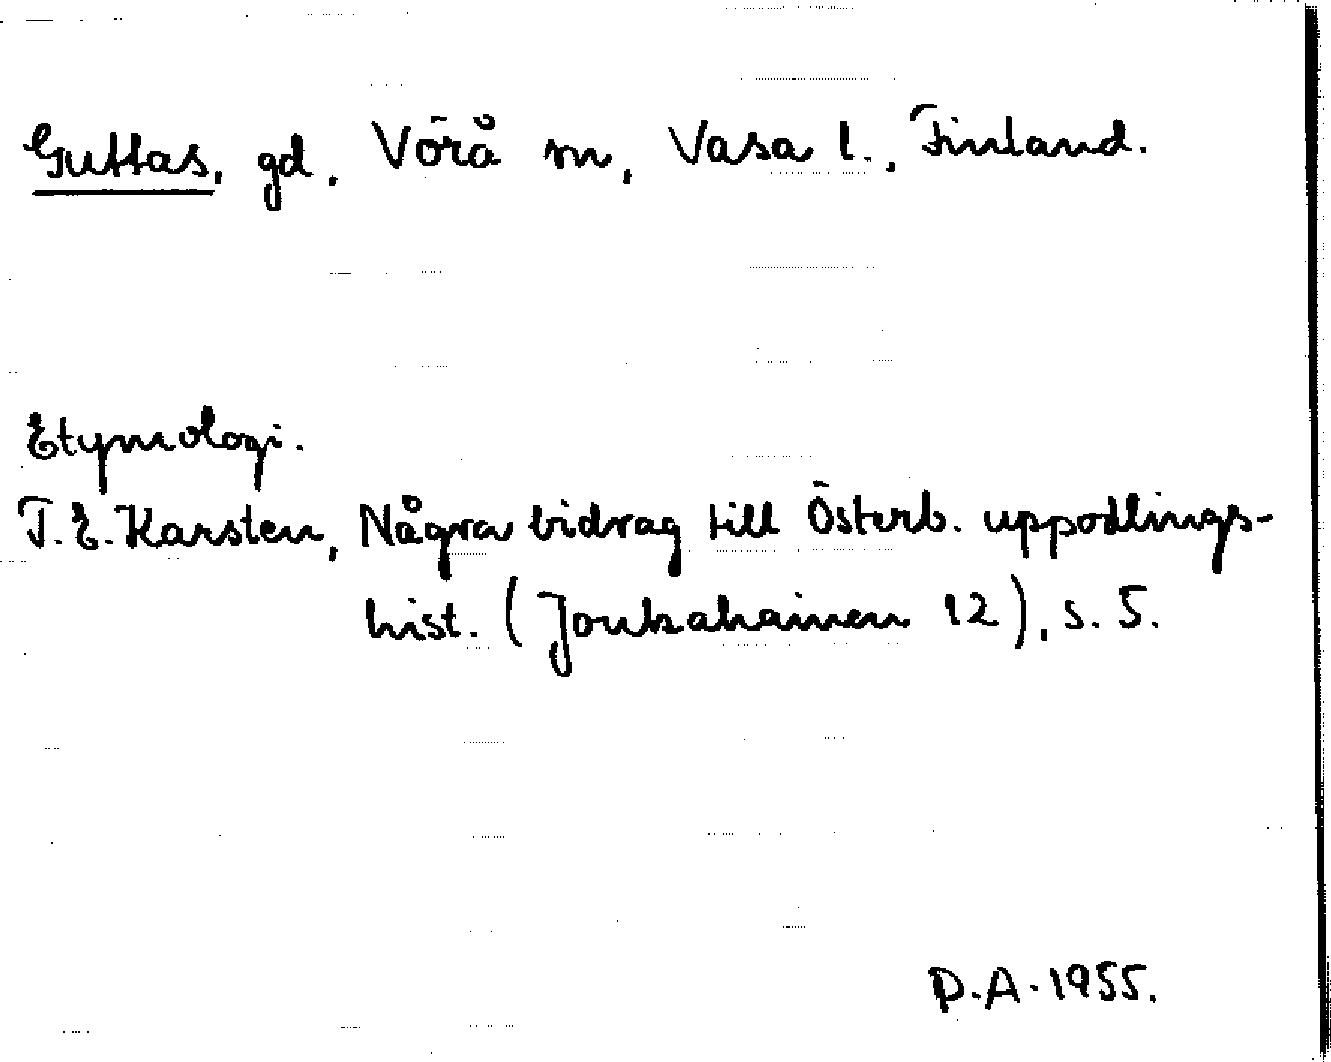 Guttas, gd, Vörå sn, Vasa l., Finland.
Etymologi.
T.E. Karsten, Några bidrag till Österb. uppodlings-
hist. (Joukahainen 12), s. 5.
D.A. 1955.